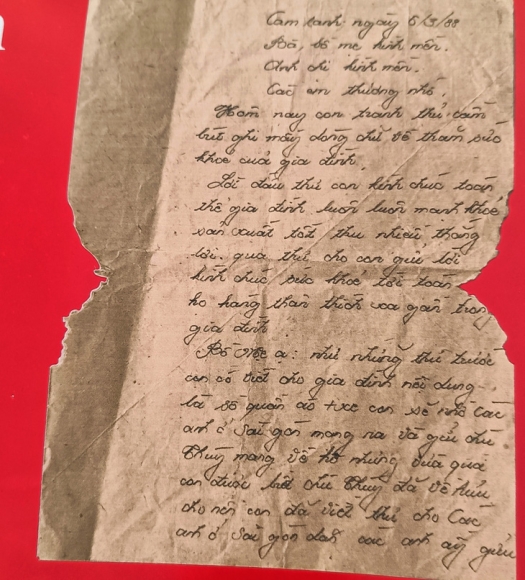 Cam ranh: ngày 6/3/88
Bà, bố mẹ kính mến.
Anh chị kính mến.
Các em thương nhớ.
Hôm nay con tranh thủ cầm
bút ghi mấy dòng chữ về thăm sức
khoẻ của gia đình.
Lời đầu thư con kính chúc toàn
thể gia đình luôn luôn mạnh khoẻ
sản xuất tốt thu nhiều thắng
lợi. qua thư cho con gửi lời
kính chúc sức khoẻ tới toàn
họ hàng thân thích xa gần trong
gia đình.
Bố Mẹ ạ: như những thư trước
con có viết cho gia đình nội dung
là số quần áo + xc con sẽ nhờ các
anh ở Sài gòn mang ra và gửi chú
Thuỷ mang về hộ nhưng vừa qua
con được biết chú Thuỷ đã về hưu
cho nên con đã viết thư cho Các
anh ở Sài gòn dặn các anh ấy gửi